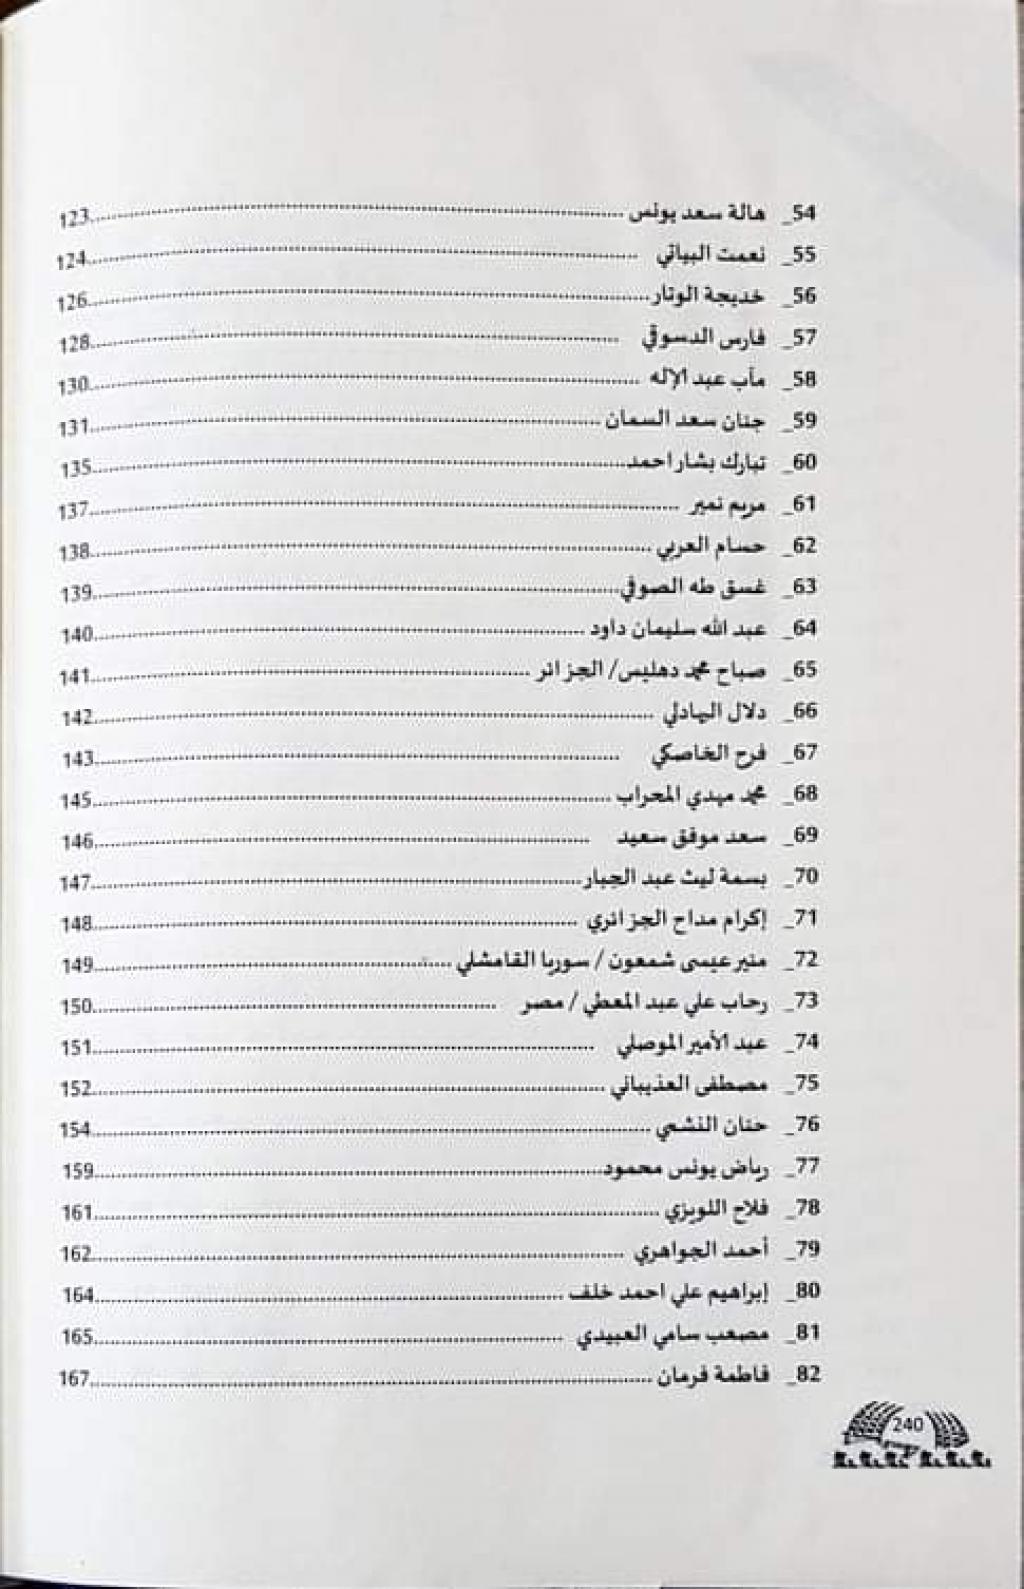 54_ هالة سعد يونس ........ 123
55_ نعمت البياتي ........ 124
56_ خديجة الوتار ........ 126
57_ فارس الدسوقي ........ 128
58_ مآب عبد الإله ........ 130
59_ جنان سعد السمان ........ 131
60_ تبارك بشار احمد ........ 135
61_ مريم نمير ........ 137
62_ حسام العربي ........ 138
63_ غسق طه الصوفي ........ 139
64_ عبد الله سليمان داود ........ 140
65_ صباح محمد دهليس/ الجزائر ........ 141
66_ دلال البهادلي ........ 142
67_ فرح الخاصكي ........ 143
68_ محمد مهدي المحراب ........ 145
69_ سعد موفق سعيد ........ 146
70_ بسمة ليث عبد الجبار ........ 147
71_ إكرام مداح الجزائري ........ 148
72_ منير عيسى شمعون / سوريا القامشلي ........ 149
73_ رحاب علي عبد المعطي / مصر ........ 150
74_ عبد الأمير الموصلي ........ 151
75_ مصطفى العذيباني ........ 152
76_ حنان النشمي ........ 154
77_ رياض يونس محمود ........ 159
78_ فلاح اللويزي ........ 161
79_ أحمد الجواهري ........ 162
80_ إبراهيم علي احمد خلف ........ 164
81_ مصعب سامي العبيدي ........ 165
82_ فاطمة فرمان ........ 167
240